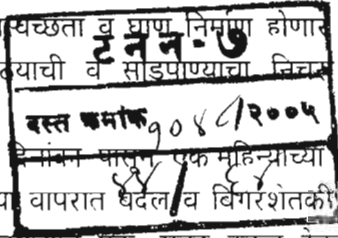 स्वच्छता व घाण निर्माण होणार
ट न न - ७
याची व सांडपाण्याचा निचरा
दस्त क्रमांक १०४८/२००५
दिनांका पासुन एक महिन्याच्या
वापरात बदल व बिगरशेतकी